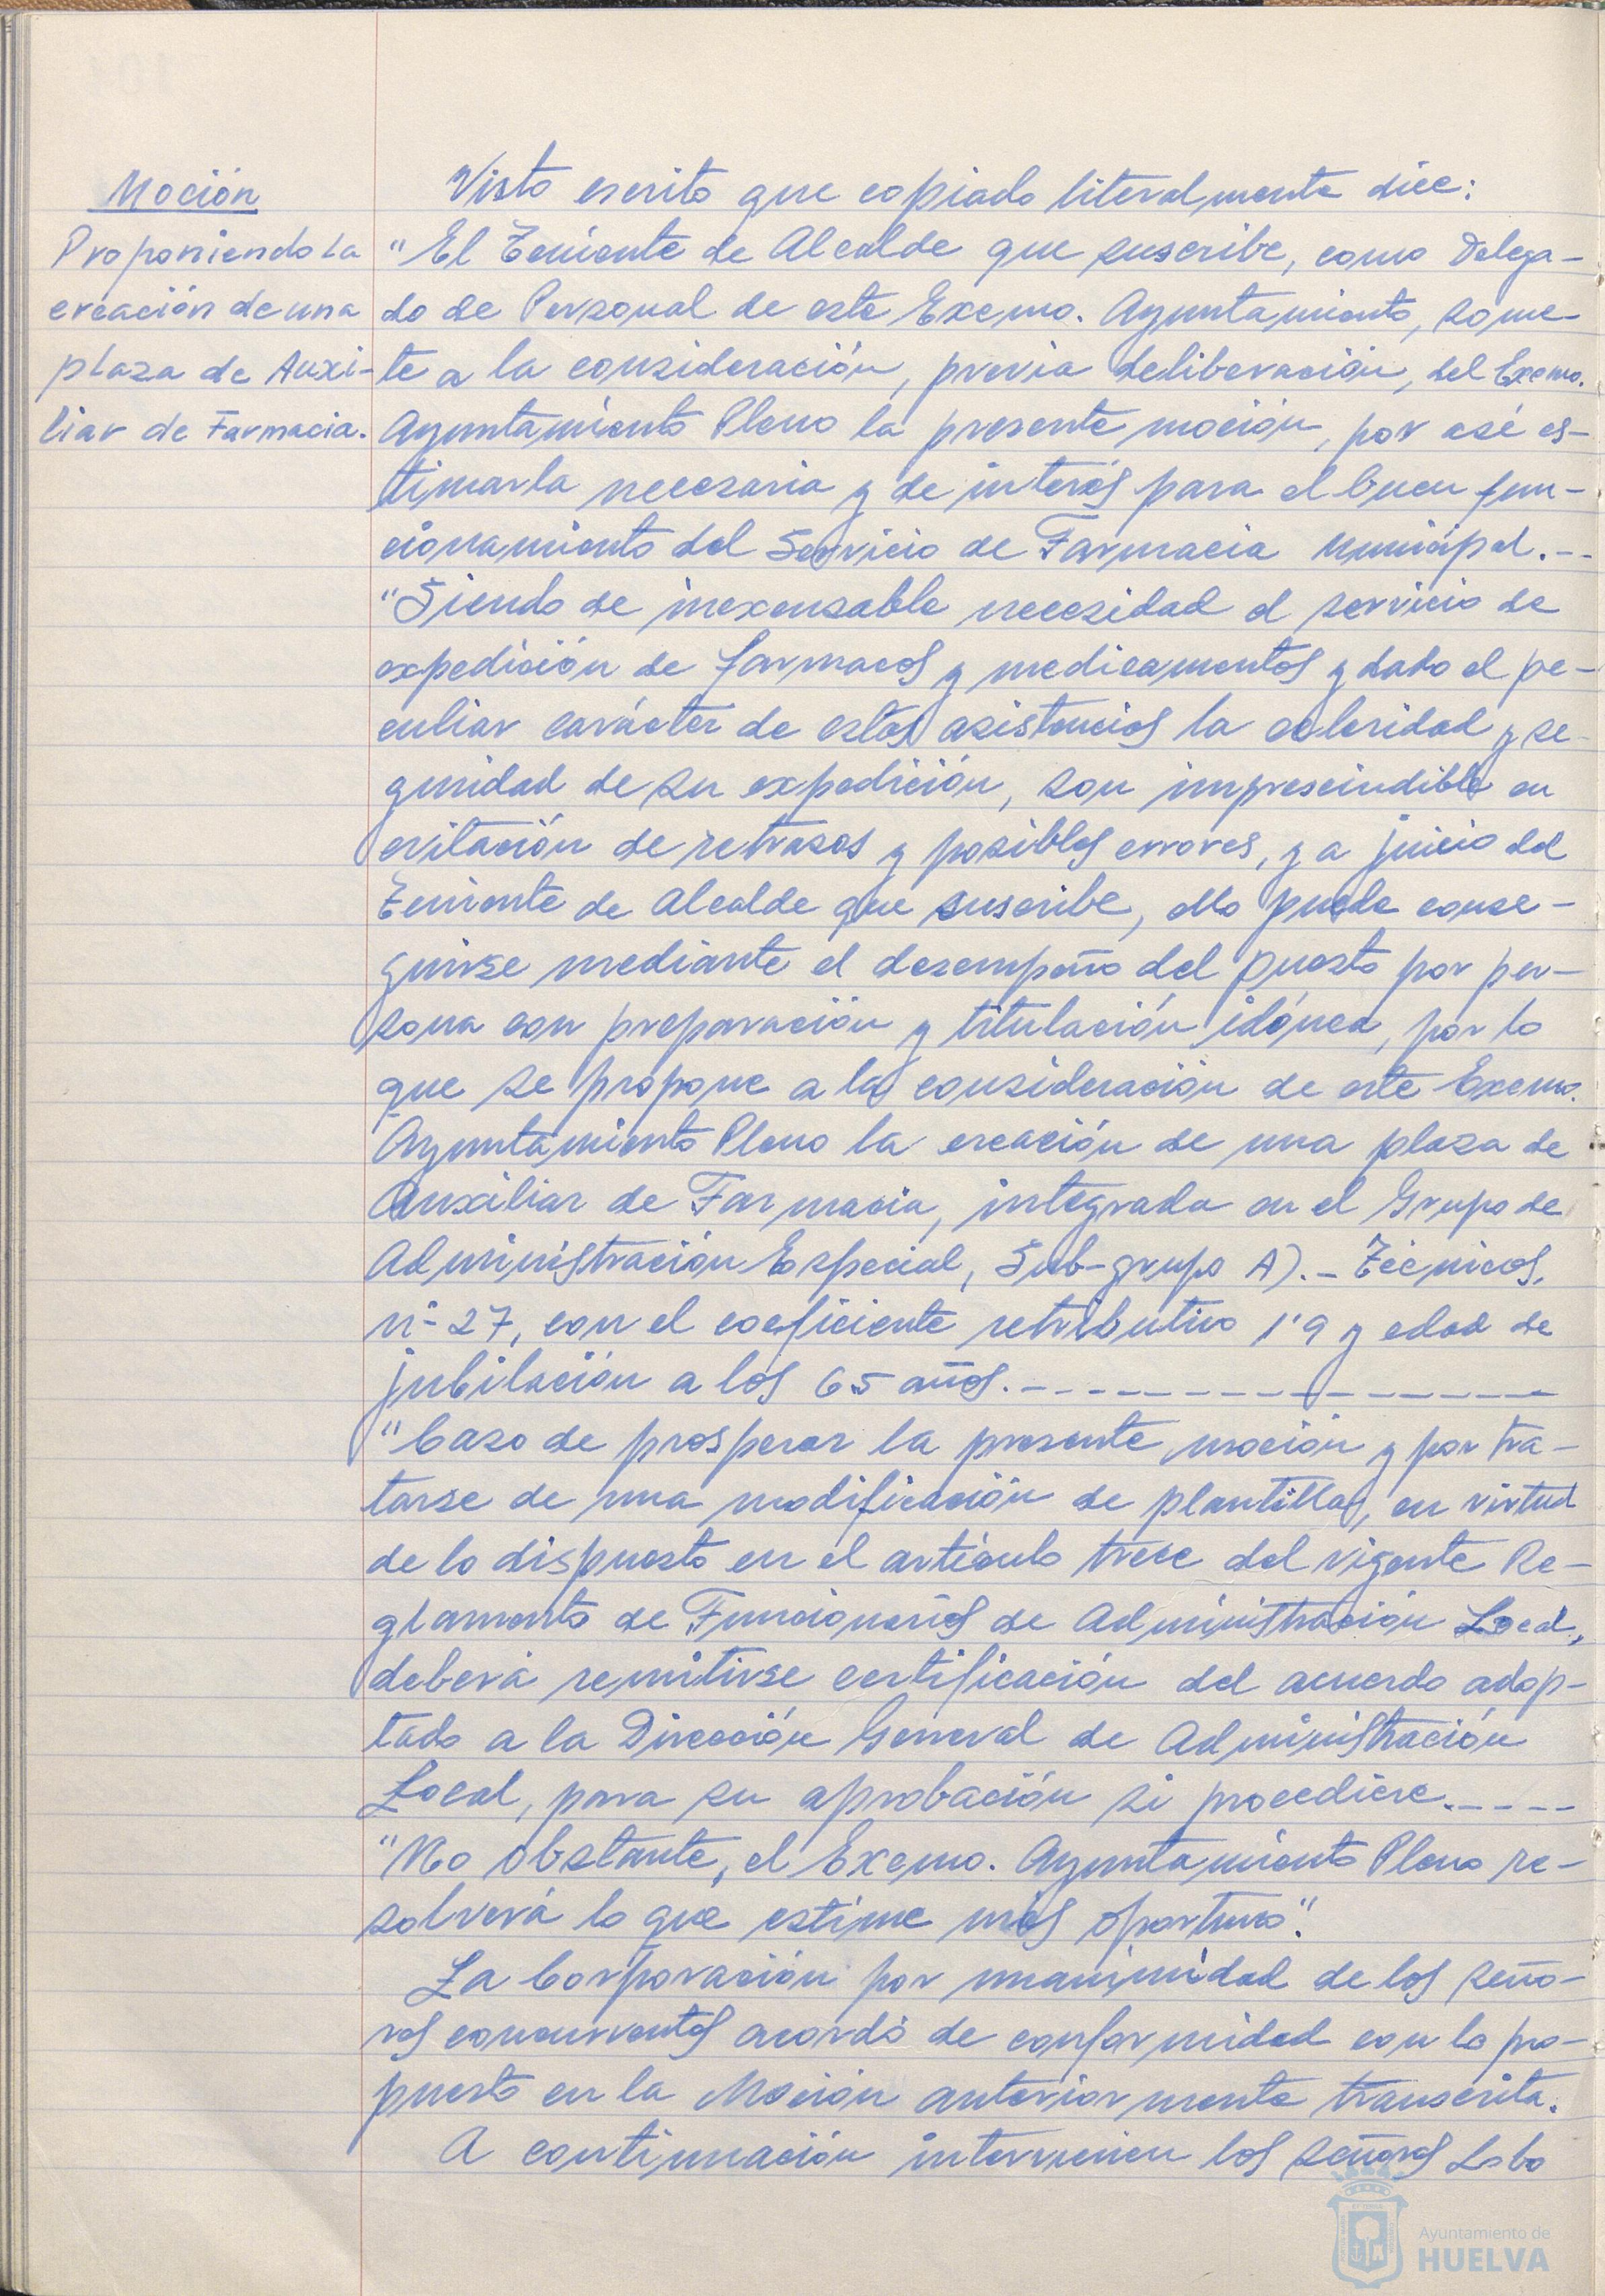 Moción
Proponiendo la
creación de una
plaza de Auxi-
liar de Farmacia.
Visto escrito que copiado literalmente dice:
"El Teniente de Alcalde que suscribe, como Delega-
do de Personal de este Excmo. Ayuntamiento, some-
te a la consideración, previa deliberación, del Excmo.
Ayuntamiento Pleno la presente moción, por asé es-
timarla necesaria y de interés para el buen fun-
cionamiento del Servicio de Farmacia Municipal.--
"Siendo de inexcusable necesidad el servicio de
expedición de farmacos y medicamentos y dado el pe-
culiar carácter de estas asistencias la celeridad y se-
guridad de su expedición, son imprescindible en
evitación de retrasos y posibles errores, y a juicio del
Teniente de Alcalde que suscribe, ello puede conse-
guirse mediante el desempeño del puesto por per-
sona con preparación y titulación idónea, por lo
que se propone a la consideración de este Excmo.
Ayuntamiento Pleno la creación de una plaza de
Auxiliar de Farmacia, integrada en el Grupo de
Administración Especial, Sub-grupo A).- Técnicos,
nº 27, con el coeficiente retributivo 1'9 y edad de
jubilación a los 65 años.----------------
"Caso de prosperar la presente moción y por tra-
tarse de una modificación de plantillas, en virtud
de lo dispuesto en el artículo trece del vigente Re-
glamento de Funcionarios de Administración Local,
deberá remitirse certificación del acuerdo adop-
tado a la Dirección General de Administración
Local, para su aprobación si procediere.-----
"No obstante, el Excmo. Ayuntamiento Pleno re-
solverá lo que estime más oportuno".
La Corporación por unanimidad de los seño-
res concurrentes acordó de conformidad con lo pro-
puesto en la Moción anteriormente transcrita.
A continuación intervienen los señores Lobo
Ayuntamiento de
HUELVA